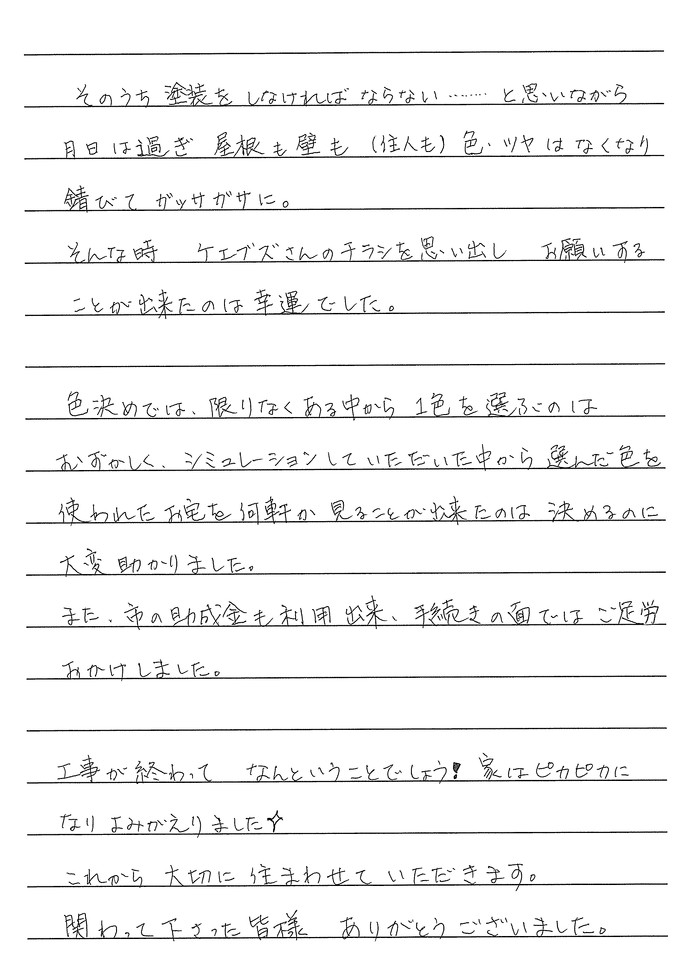 そのうち 塗装を しなければ ならない……… と思いながら
月日は過ぎ 屋根も壁も (住人も) 色・ツヤは なくなり
錆びて ガッサガサに。
そんな時 ケエブズさんのチラシを思い出し お願いする
ことが出来たのは幸運でした。
色決めでは、限りなくある中から 1色を選ぶのは
むずかしく、シミュレーションして いただいた中から 選んだ色を
使われたお宅を何軒か 見ることが出来たのは 決めるのに
大変助かりました。
また、市の助成金も利用出来、手続きの面ではご足労
おかけしました。
工事が終わって なんということでしょう! 家はピカピカに
なり よみがえりました✧
これから 大切に 住まわせて いただきます。
関わって下さった皆様 ありがとうございました。